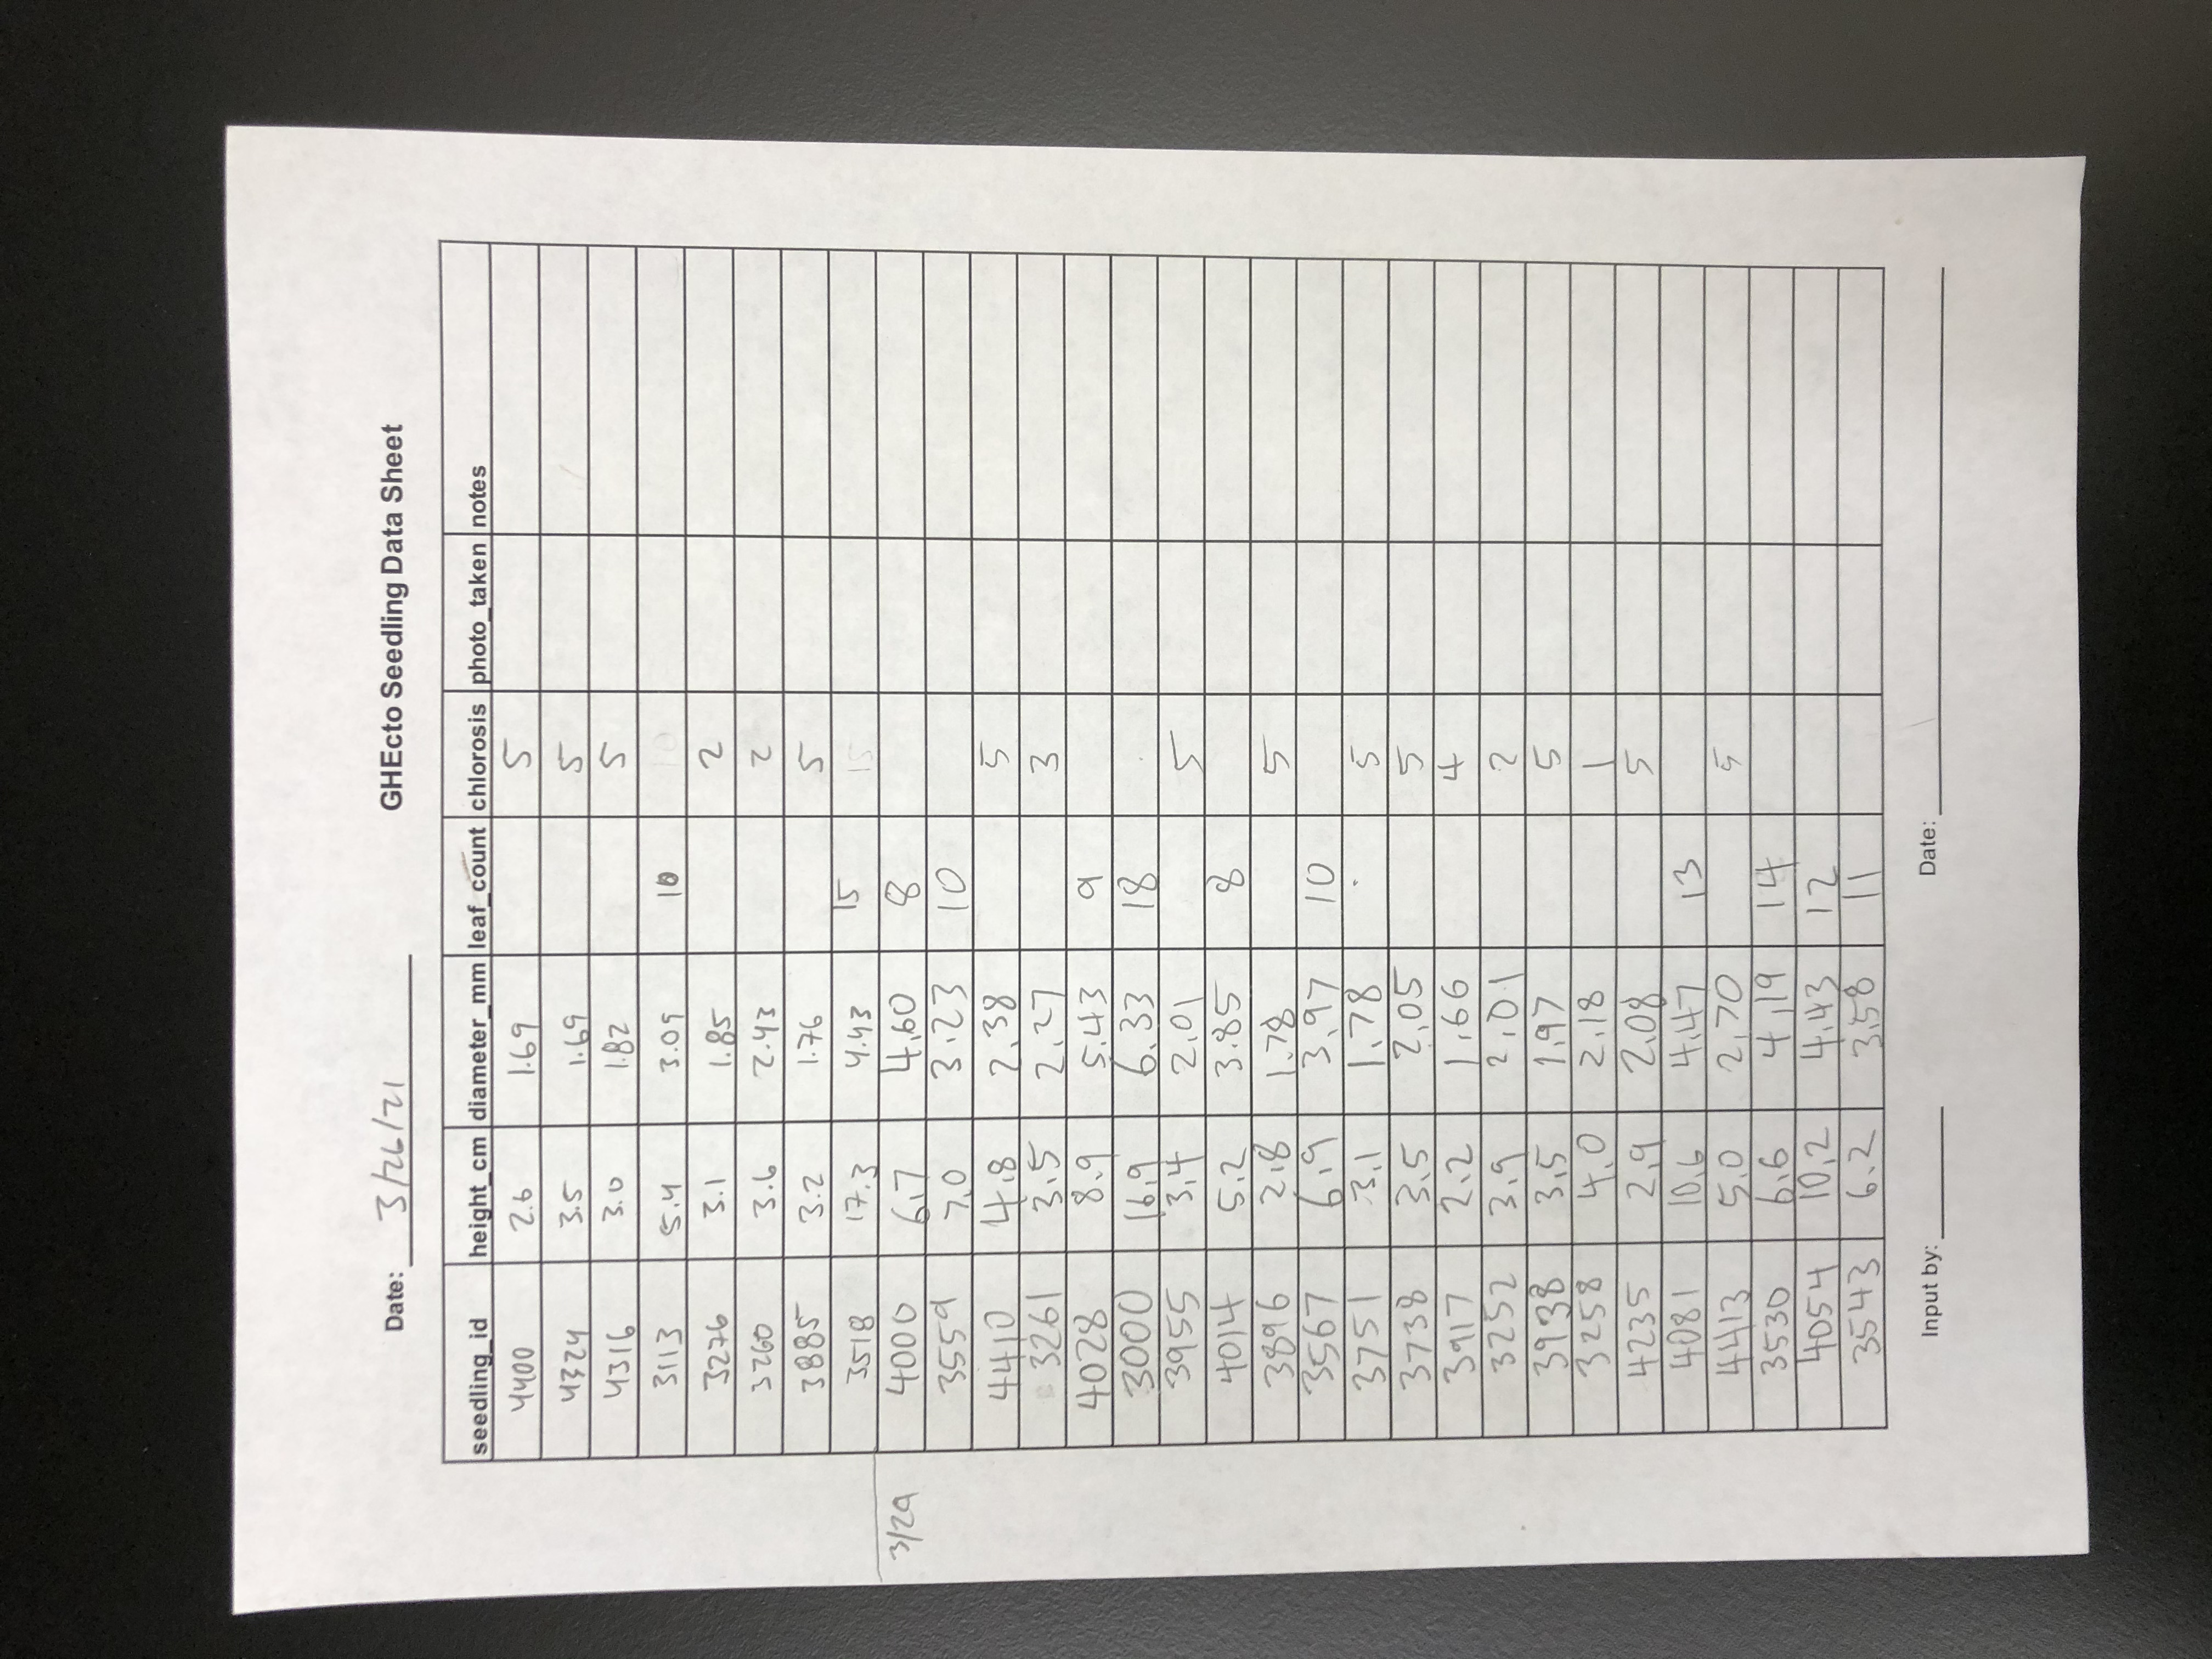 Date: 3/26/21 GHEcto Seedling Data Sheet
seedling_id height_cm diameter_mm leaf_count chlorosis photo_taken notes
4400 2.6 1.69 5
4324 3.5 1.69 5
4316 3.0 1.82 5
3113 5.4 3.09 10
3276 3.1 1.85 2
3260 3.6 2.43 2
3885 3.2 1.76 5
3518 17.3 4.43 15
3/29 4000 6.7 4.60 8
3559 7.0 3.23 10
4410 4.8 2.38 5
3261 3.5 2.27 3
4028 8.9 5.43 9
3000 16.9 6.33 18
3955 3.4 2.01 5
4014 5.2 3.85 8
3896 2.8 1.78 5
3567 6.9 3.97 10
3751 3.1 1.78 5
3738 3.5 2.05 5
3917 2.2 1.66 4
3252 3.9 2.01 2
3938 3.5 1.97 5
3258 4.0 2.18 1
4235 2.9 2.08 5
4081 10.6 4.47 13
4413 5.0 2.70 5
3530 6.6 4.19 14
4054 10.2 4.43 12
3543 6.2 3.58 11
Input by: Date: